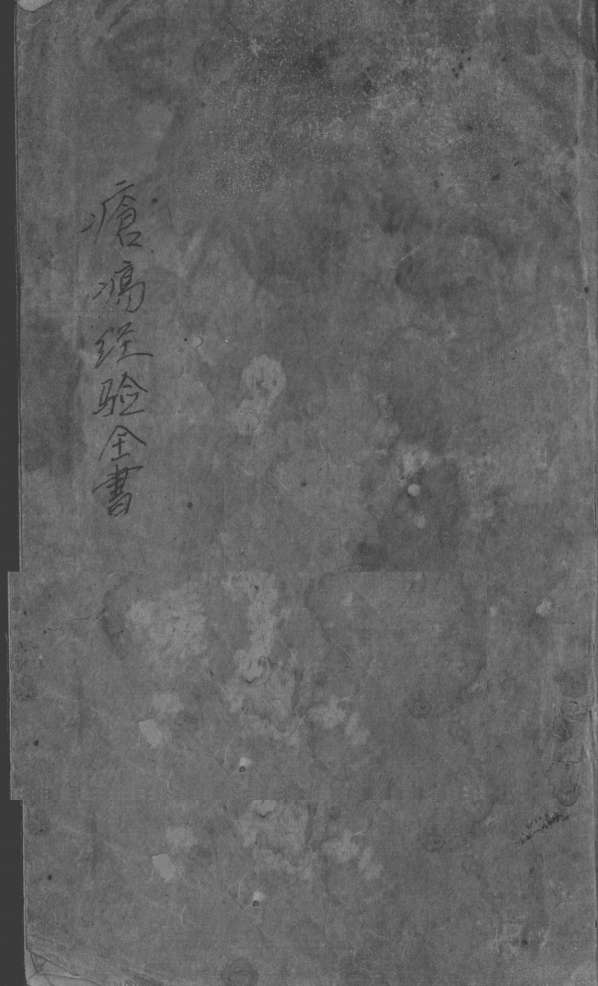 瘡瘍经验全書